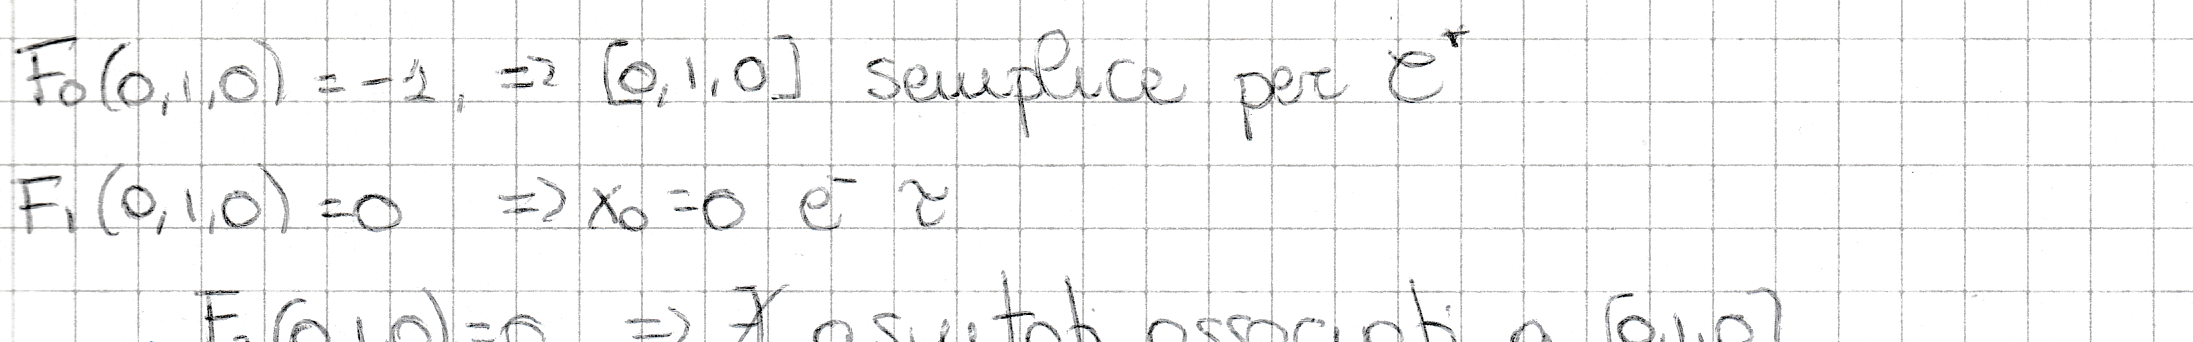 F₀(0,1,0) = -1, => [0,1,0] semplice per C*
F₁(0,1,0) = 0 => x₀ = 0 è τ
F₂(0,1,0) = 0 => ∄ asintoti associati a [0,1,0]